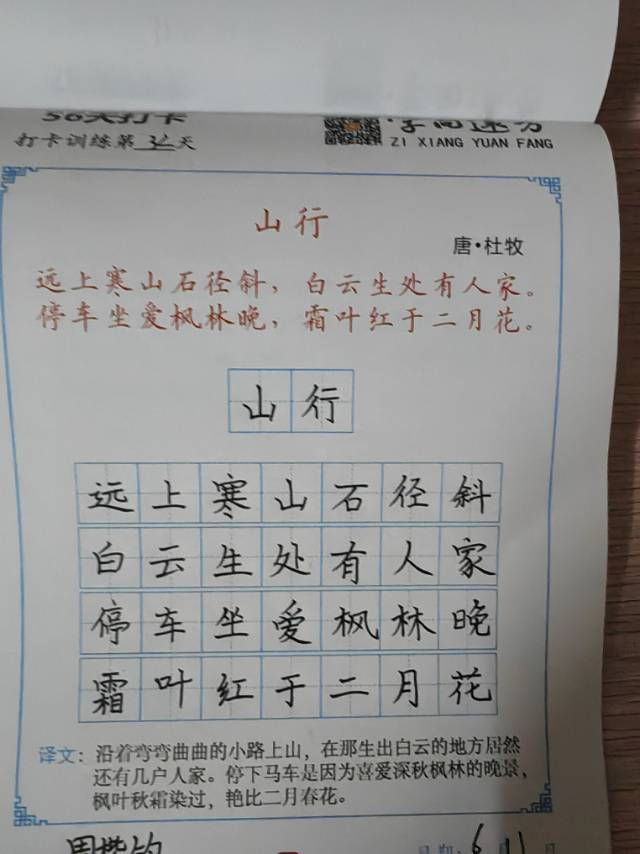 打卡训练第32天
ZI XIANG YUAN FANG
山行
唐·杜牧
远上寒山石径斜，白云生处有人家。
停车坐爱枫林晚，霜叶红于二月花。
山行
远上寒山石径斜
白云生处有人家
停车坐爱枫林晚
霜叶红于二月花
译文：沿着弯弯曲曲的小路上山，在那生出白云的地方居然
还有几户人家。停下马车是因为喜爱深秋枫林的晚景，
枫叶秋霜染过，艳比二月春花。
6月11日